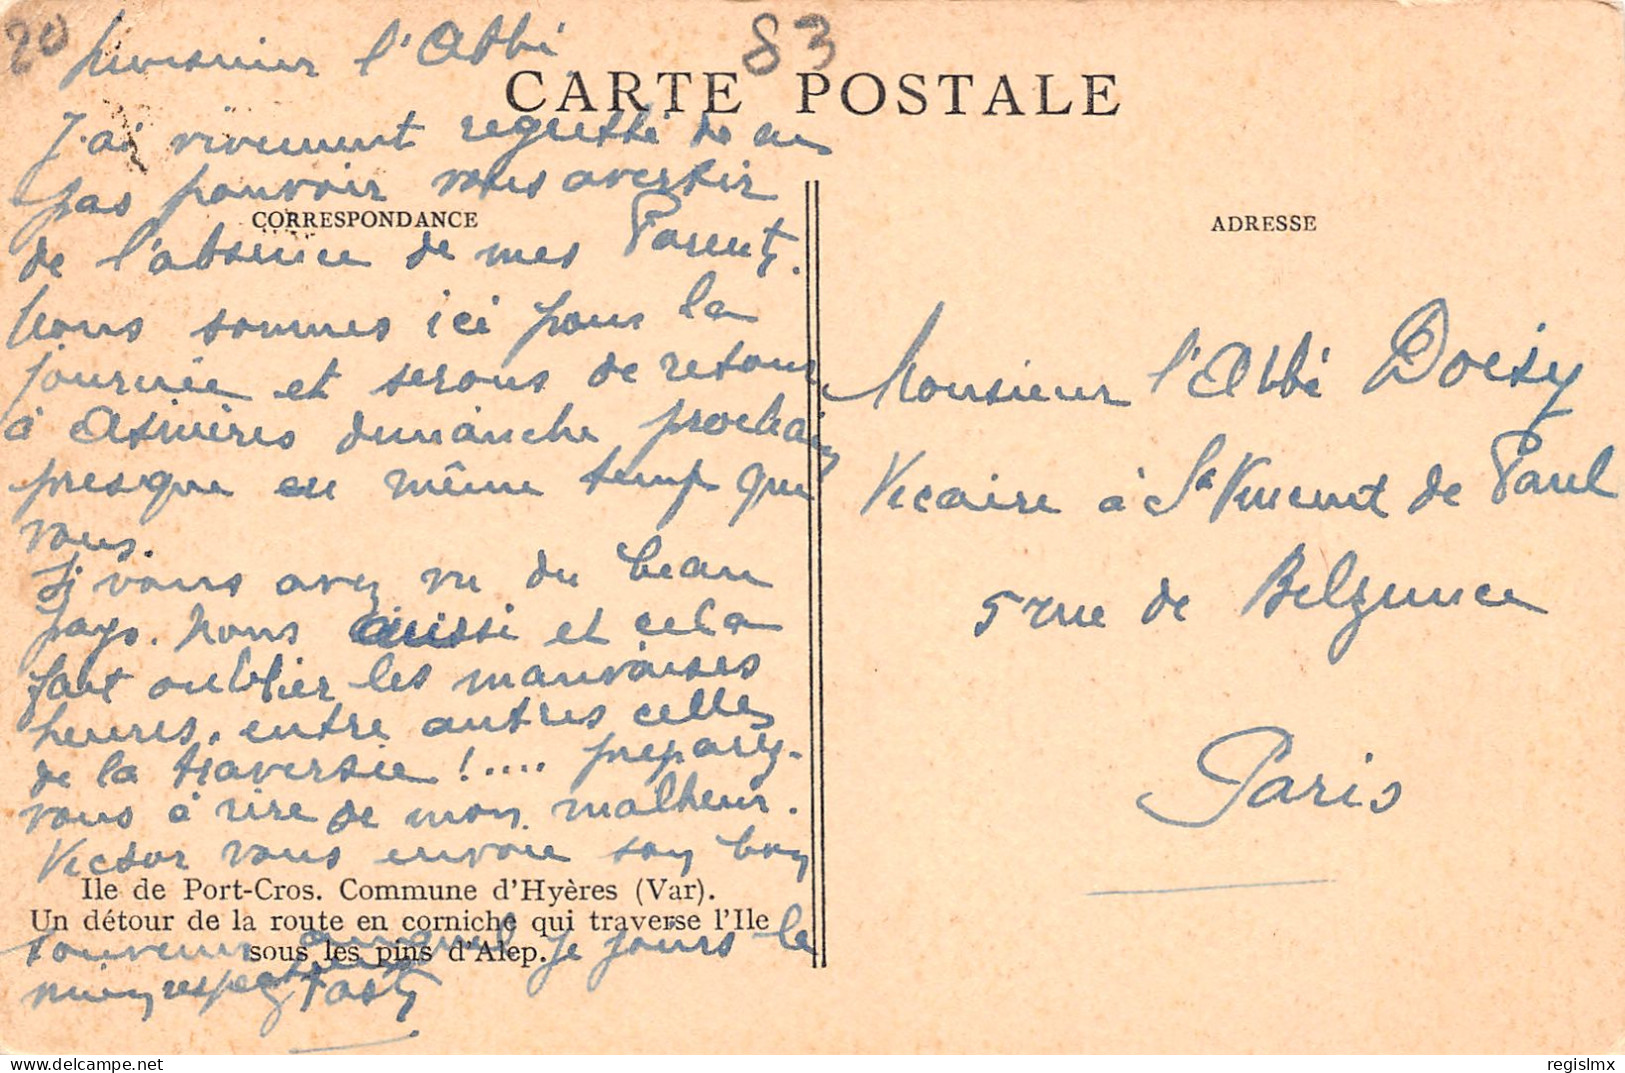 20
83
Monsieur l'Abbé
CARTE POSTALE
J'ai vivement regretté de ne
pas pouvoir vous avertir
CORRESPONDANCE
de l'absence de mes Parents.
Nous sommes ici pour la
journée et serons de retour
à Asnières dimanche prochain
presque en même temps que
vous.
Si vous avez vu du beau
pays. nous aussi et cela
fait oublier les mauvaises
heures, entre autres celles
de la traversée !.... préparez-
vous à rire de mon malheur.
Victor vous envoie son bon
Ile de Port-Cros. Commune d'Hyères (Var).
Un détour de la route en corniche qui traverse l'Ile
sous les pins d'Alep.
souvenir auquel je joins le
mien respectueux
ADRESSE
Monsieur l'Abbé Doisy
Vicaire à St Vincent de Paul
5 rue de Belzunce
Paris
delcampe.net
regislmx